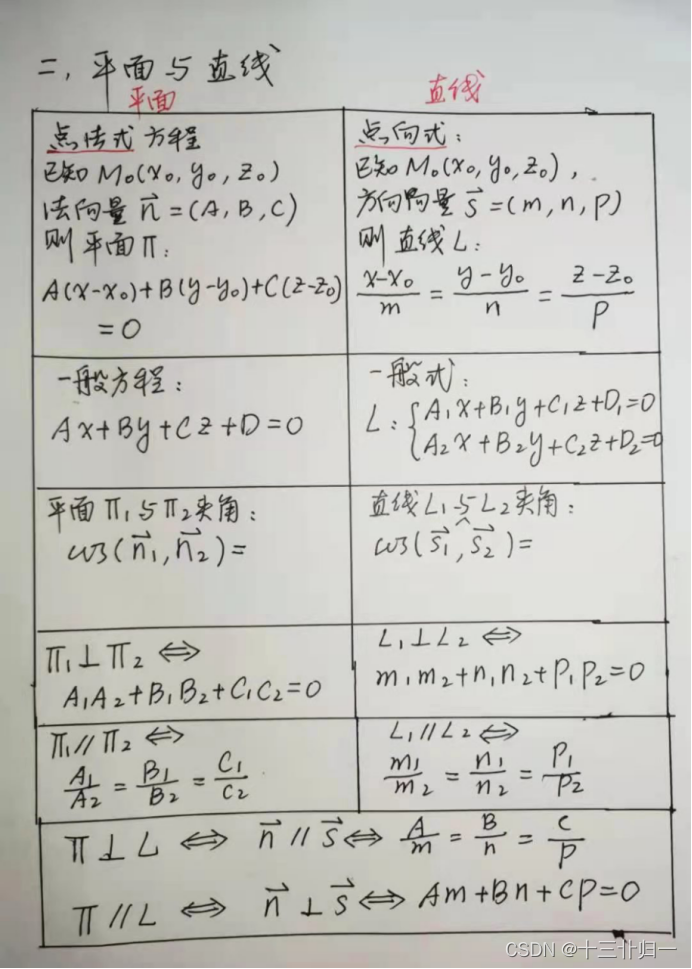 二，平面与直线
平面
直线
点法式方程
已知 M₀(x₀, y₀, z₀)
法向量 n⃗ = (A, B, C)
则平面 Π:
A(x-x₀)+B(y-y₀)+C(z-z₀)
=0
点向式:
已知 M₀(x₀, y₀, z₀),
方向向量 s⃗ = (m, n, p)
则直线 L:
(x-x₀)/m = (y-y₀)/n = (z-z₀)/p
一般方程:
Ax+By+Cz+D=0
一般式:
L: { A₁x+B₁y+C₁z+D₁=0
A₂x+B₂y+C₂z+D₂=0
平面 Π₁与Π₂夹角:
cos(n⃗₁, n⃗₂)=
直线 L₁与L₂夹角:
cos(s⃗₁^, s⃗₂)=
Π₁⊥Π₂ ⇔
A₁A₂+B₁B₂+C₁C₂=0
L₁⊥L₂ ⇔
m₁m₂+n₁n₂+p₁p₂=0
Π₁//Π₂ ⇔
A₁/A₂ = B₁/B₂ = C₁/C₂
L₁//L₂ ⇔
m₁/m₂ = n₁/n₂ = p₁/p₂
Π⊥L ⇔ n⃗//s⃗ ⇔ A/m = B/n = C/p
Π//L ⇔ n⃗⊥s⃗ ⇔ Am+Bn+Cp=0
CSDN @十三什归一